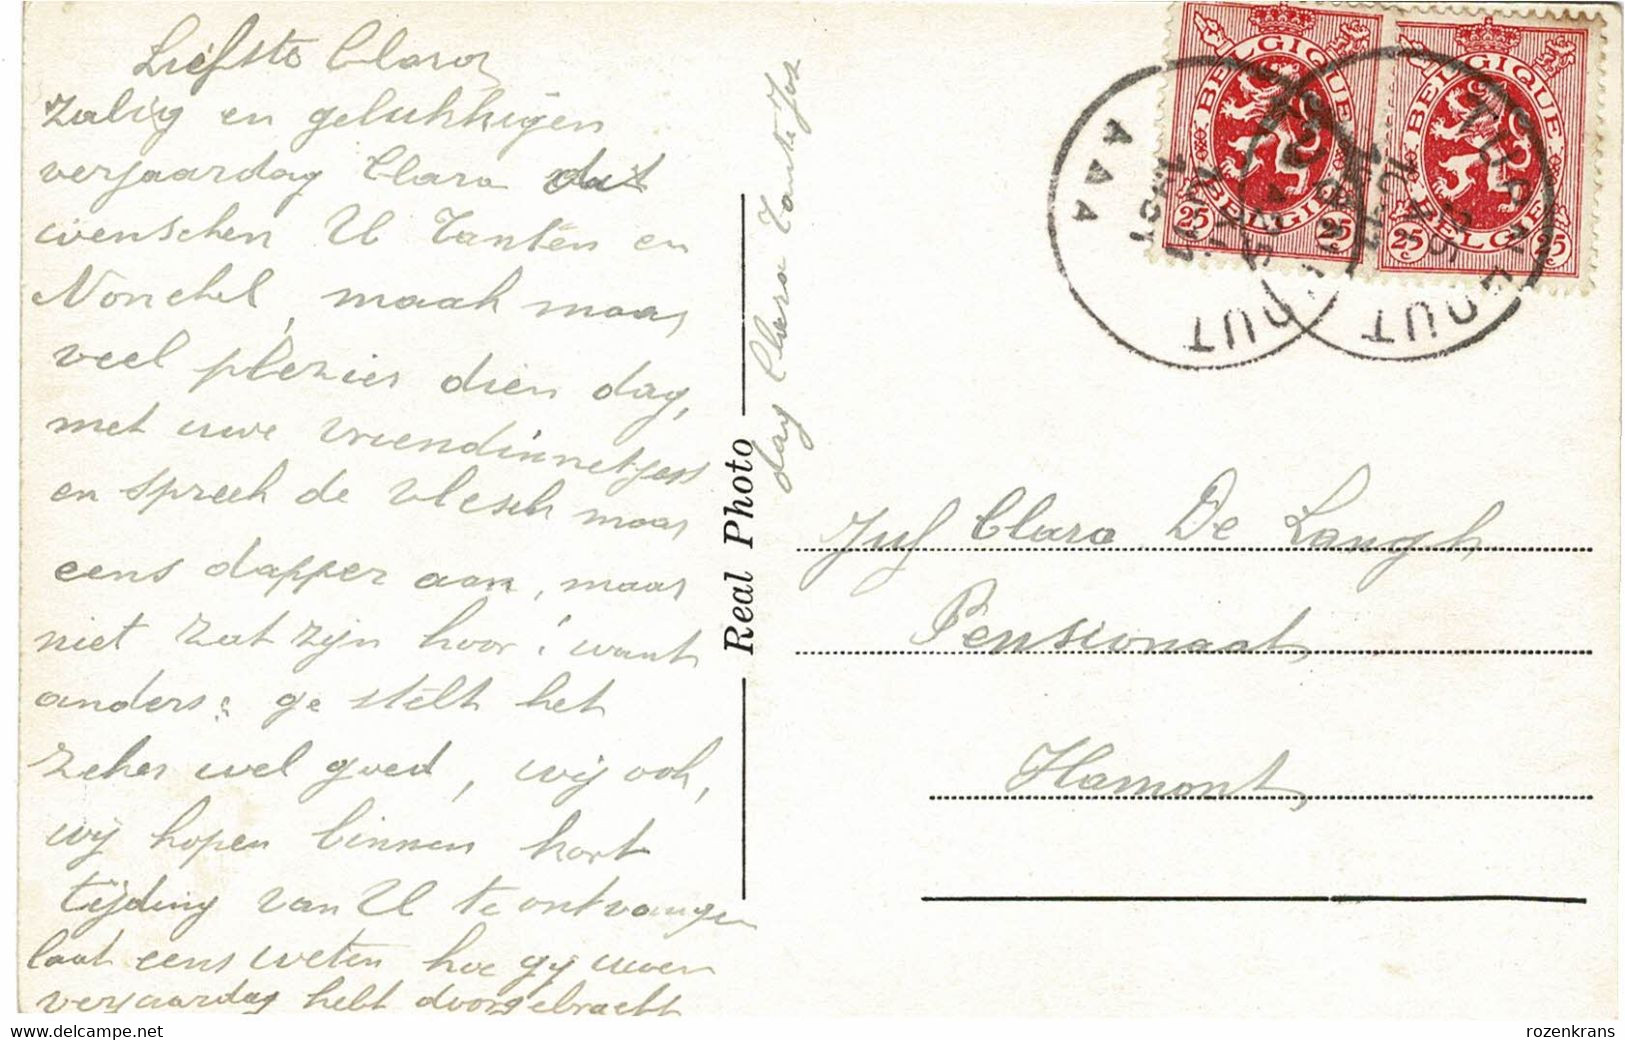 Liefste Clara
zalig en gelukkigen
verjaardag Clara dat
wenschen U Tanten en
Nonckel, maak maar
veel plezier dien dag,
met uwe vriendinnetjes
en spreek de vlesch maar
eens dapper aan, maar
niet zat zijn hoor! want
anders: ge stelt het
zeker wel goed, wij ook,
wij hopen binnen kort
tijding van U te ontvangen
laat eens weten hoe gij uwen
verjaardag hebt doorgebracht
dag Clara Tante Jos
Real Photo
BELGIQUE
BELGIË
25 25
BELGIQUE
BELGIË
25 25
TURNHOUT
Juf Clara De Langh
Pensionaat
Hamont
www.delcampe.net
rozenkrans